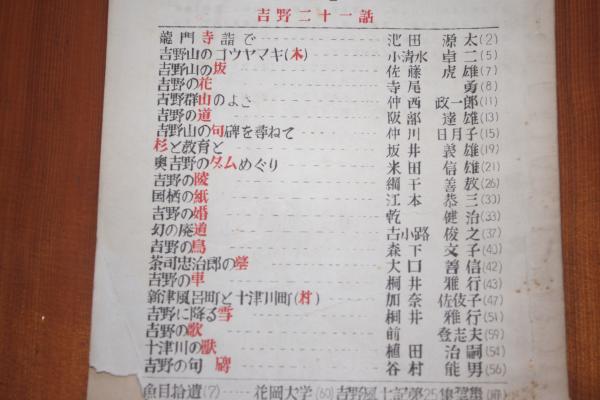 吉野二十一話
龍門寺詣で 池田 源太(2)
吉野山のゴウヤマキ(木) 小清水 卓二(5)
吉野山の坂 佐藤 虎雄(7)
吉野の花 寺尾 勇(8)
吉野群山のよさ 仲西 政一郎(11)
吉野の道 阪部 達雄(13)
吉野山の句碑を尋ねて 仲川 日月子(15)
杉と教育と 坂井 義雄(19)
奥吉野のダムめぐり 米田 信雄(21)
吉野の陵 網干 善教(26)
国栖の紙 江本 恭三(33)
吉野の婚 乾 健治(33)
幻の廃道 古小路 俊之(37)
吉野の鳥 森下 文子(40)
茶司忠治郎の墓 大口 善信(42)
吉野の車 桐井 雅行(43)
新津風呂町と十津川町(村) 加奈 佐伎子(47)
吉野に降る雪 桐井 雅行(51)
吉野の歌 前 登志夫(59)
十津川の獣 植田 治嗣(54)
吉野の句碑 谷村 能男(56)
魚目拾遺(7) 花岡大学(60) 吉野風土記第25集